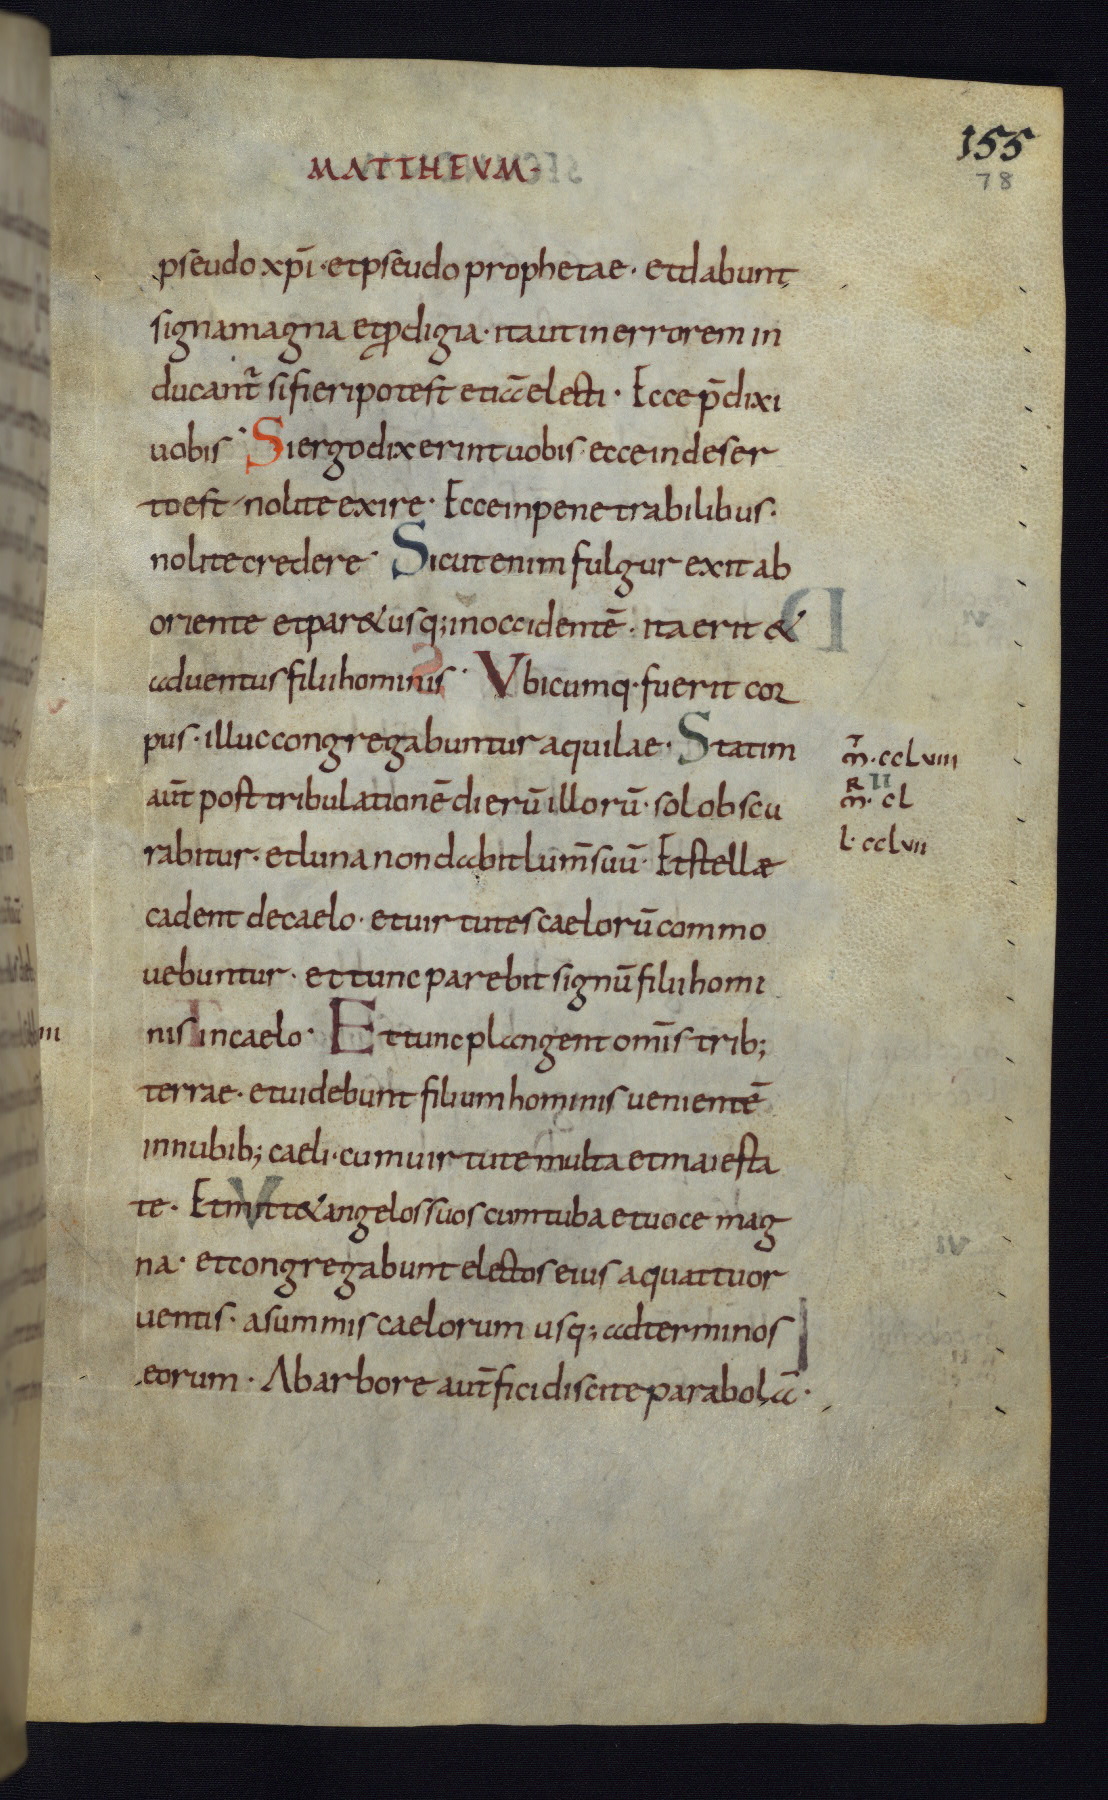 MATTHEVM·
155
78
pseudo xp̄i · et pseudo prophetae · et dabunt
signa magna et ꝓdigia · ita ut in errorem in
ducant᷑ si fieri potest etiā electi · Ecce p̄dixi
uobis · Si ergo dixerint uobis · ecce in deser
to est · nolite exire · Ecce in penetrabilibus ·
nolite credere · Sicut enim fulgur exit ab
oriente et par& usq; in occidentē · ita erit &
aduentus filii hominis · Vbicumq· fuerit cor
pus · illuc congregabuntur aquilae · Statim
aūt post tribulationē dierū illorū · sol obscu
rabitur · et luna non dabit lum̄ suū · Et stellæ
cadent de caelo · et uirtutes caelorū commo
uebuntur · et tunc parebit signū filii homi
nis in caelo · Et tunc plangent om̄s trib;
terrae · et uidebunt filium hominis uenientē
in nubib; caeli · cum uirtute multa et maiesta
te · Et mitt& angelos suos cum tuba et uoce mag
na · et congregabunt electos eius a quattuor
uentis · a summis caelorum usq; ad terminos
eorum · Ab arbore aūt fici discite parabolā ·
m̄ · cclviii
R II
m̄ · cl
l · cclvii